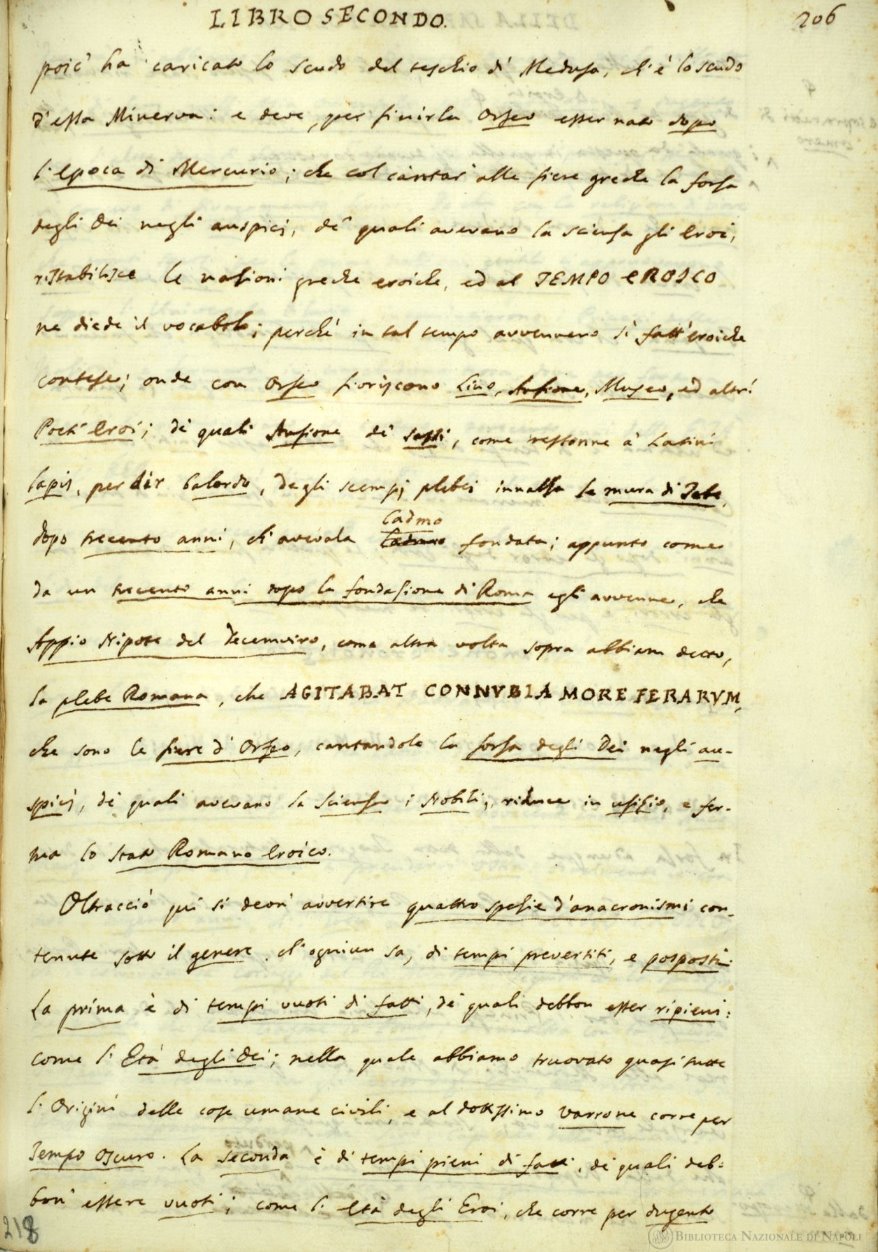 LIBRO SECONDO.
206
poic' ha caricato lo scudo del teschio di Medusa, ch'è lo scudo
d'essa Minerva: e deve, per finirla Orfeo esser nato dopo
l'epoca di Mercurio; che col cantar' alle fiere greche la forza
degli Dei negli auspicj, de' quali avevano la scienza gli Eroi,
ristabilisce le nazioni greche eroiche, ed al TEMPO EROICO
ne diede il vocabolo; perchè in tal tempo avvennero sì fatt' eroiche
contese; onde con Orfeo fioriscono Lino, Anfione, Museo, ed altri
Poeti Eroi; de' quali Anfione de' sassi, come restonne a' Latini
lapis, per dir balordo, degli scempj plebei innalza le mura di Tebe,
dopo trecento anni, ch'avevala Cadmo fondata; appunto come
da un trecento anni dopo la fondazione di Roma egli avvenne, che
Appio Nipote del Decemviro, come altra volta sopra abbiam detto,
la plebe Romana, che AGITABAT CONNVBIA MORE FERARVM,
che sono le fiere d'Orfeo, cantandole la forza degli Dei negli au-
spicj, de' quali avevano la Scienza i Nobili, riduce in ufizio, e fer-
ma lo Stato Romano Eroico.
Oltracciò qui si deon' avvertire quattro spezie d'anacronismi con-
tenute sotto il genere, ch'ogniun sa, di tempi prevertiti, e posposti.
La prima è di tempi vuoti di fatti, de' quali debbon esser ripieni:
come l'Età degli Dei; nella quale abbiamo truovato quasi tutte
l'Origini delle cose umane civili, e al dottissimo Varrone corre per
Tempo Oscuro. La seconda è di tempi pieni di fatti, de' quali deb-
bon' essere vuoti; come l'Età degli Eroi, che corre per dugento
218
BIBLIOTECA NAZIONALE DI NAPOLI